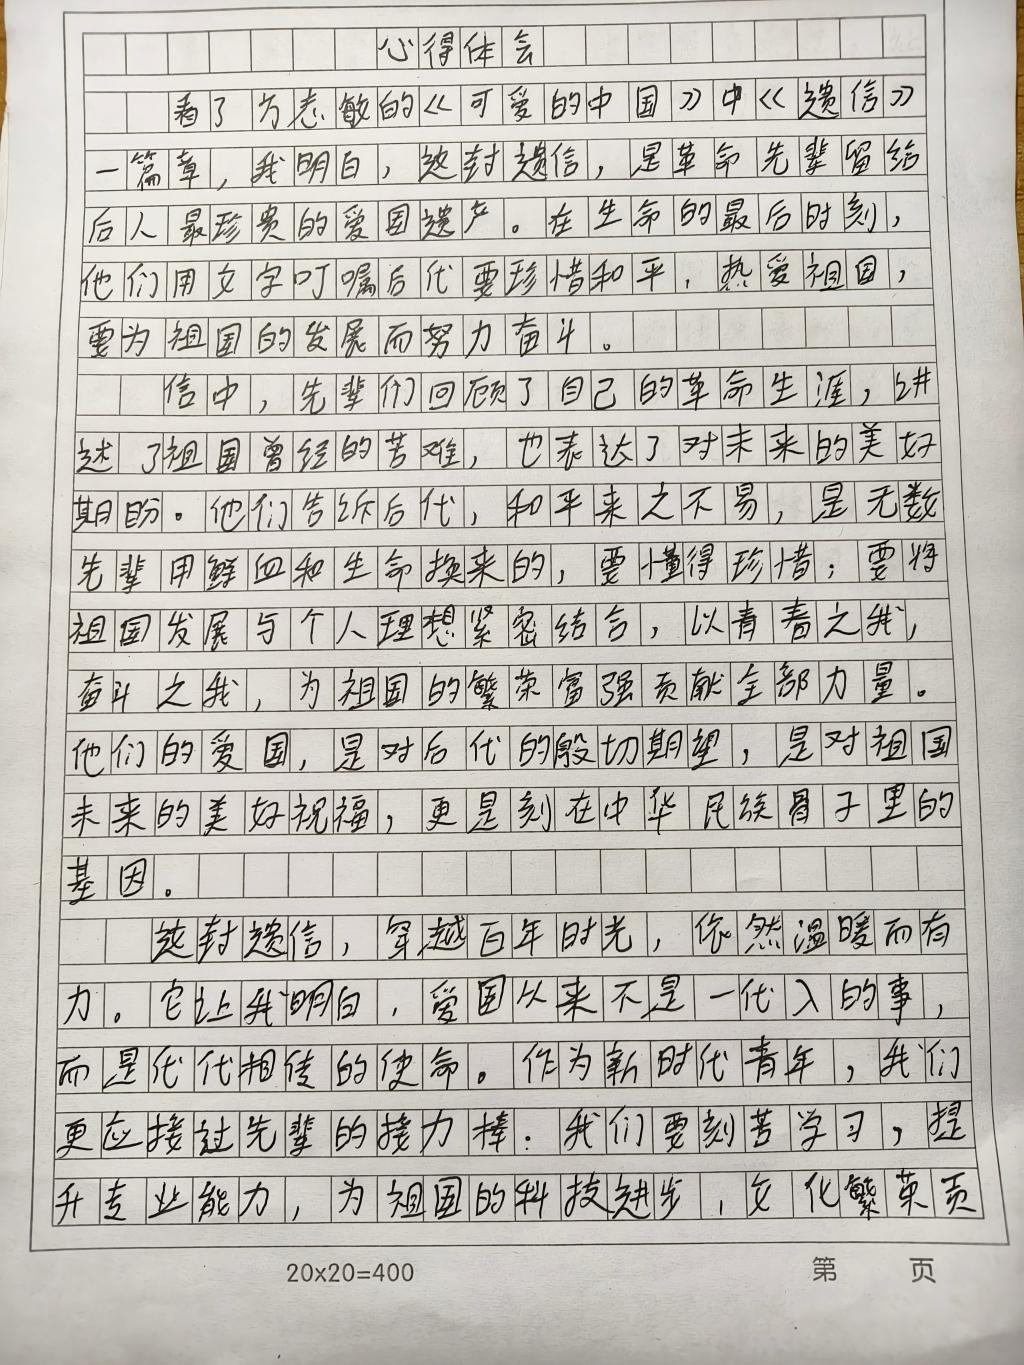 心得体会
看了方志敏的《可爱的中国》中《遗信》
一篇章，我明白，这封遗信，是革命先辈留给
后人最珍贵的爱国遗产。在生命的最后时刻，
他们用文字叮嘱后代要珍惜和平，热爱祖国，
要为祖国的发展而努力奋斗。
信中，先辈们回顾了自己的革命生涯，讲
述了祖国曾经的苦难，也表达了对未来的美好
期盼。他们告诉后代，和平来之不易，是无数
先辈用鲜血和生命换来的，要懂得珍惜；要将
祖国发展与个人理想紧密结合，以青春之我，
奋斗之我，为祖国的繁荣富强贡献全部力量。
他们的爱国，是对后代的殷切期望，是对祖国
未来的美好祝福，更是刻在中华民族骨子里的
基因。
这封遗信，穿越百年时光，依然温暖而有
力。它让我明白，爱国以来不是一代人的事，
而是代代相传的使命。作为新时代青年，我们
更应接过先辈的接力棒：我们要刻苦学习，提
升专业能力，为祖国的科技进步，文化繁荣贡
20x20=400 第 页